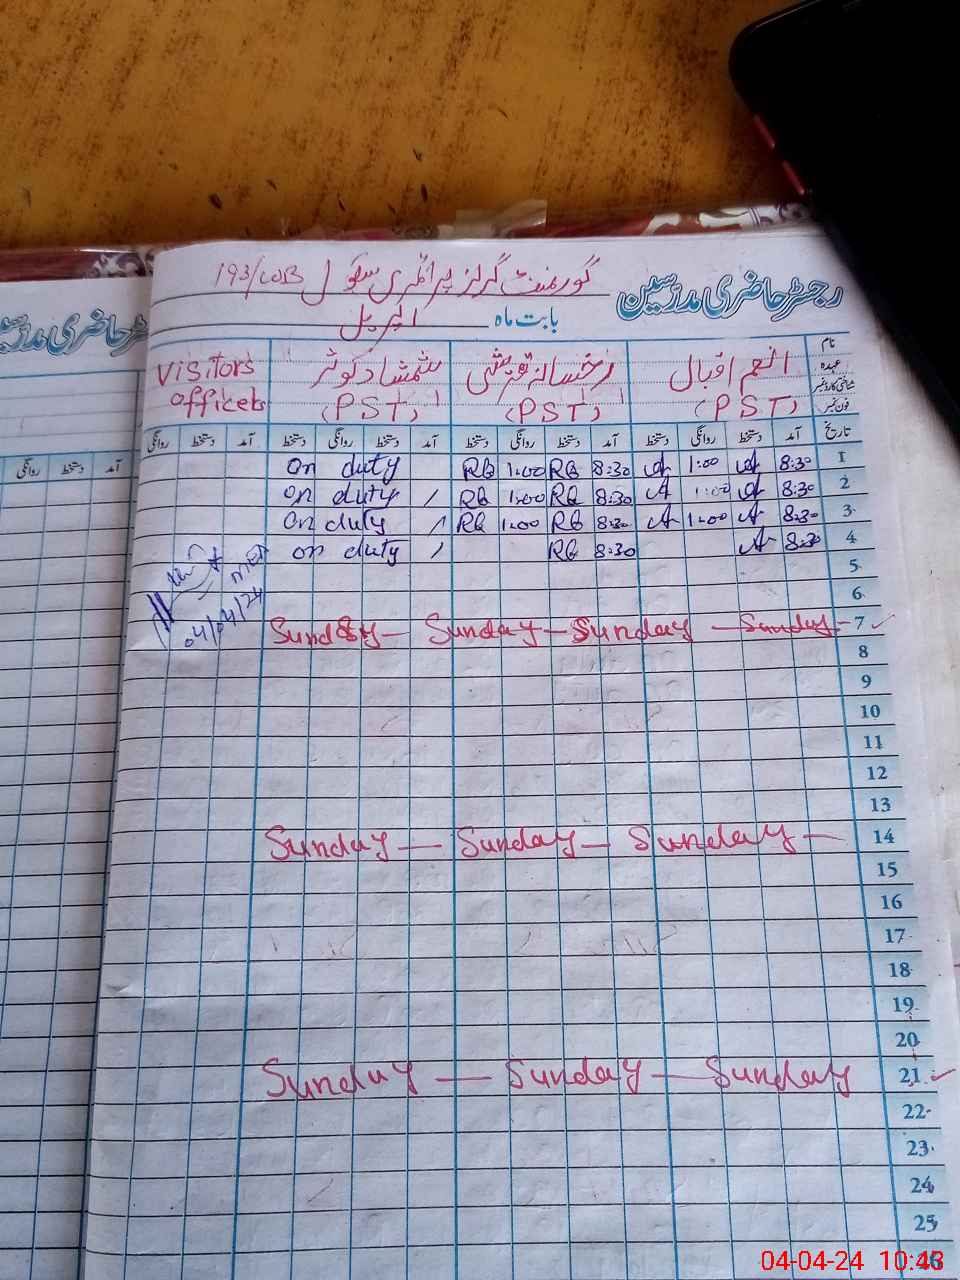 رجسٹر حاضری مدرسین گورنمنٹ گرلز پرائمری سکول 193/WB
بابت ماہ اپریل
نام انعم اقبال رخسانہ قریشی شمشاد کوثر Visitors
عہدہ
شناختی کارڈ نمبر
فون نمبر (PST) (PST) (PST) officers
تاریخ آمد دستخط روانگی دستخط آمد دستخط روانگی دستخط آمد دستخط روانگی دستخط آمد دستخط روانگی
on duty RQ 1:00 RQ 8:30 A 1:00 A 8:30 1
on duty RQ 1:00 RQ 8:30 A 1:00 A 8:30 2
on duty RQ 1:00 RQ 8:30 A 1:00 A 8:30 3
on duty RQ 8:30 A 8:30 4
5
6
04/04/24
Sunday — Sunday — Sunday — Sunday — 7
8
9
10
11
12
13
Sunday — Sunday — Sunday — 14
15
16
17
18
19
20
Sunday — Sunday — Sunday 21
22
23
24
25
رجسٹر حاضری مدرسین
آمد دستخط روانگی
04-04-24 10:43